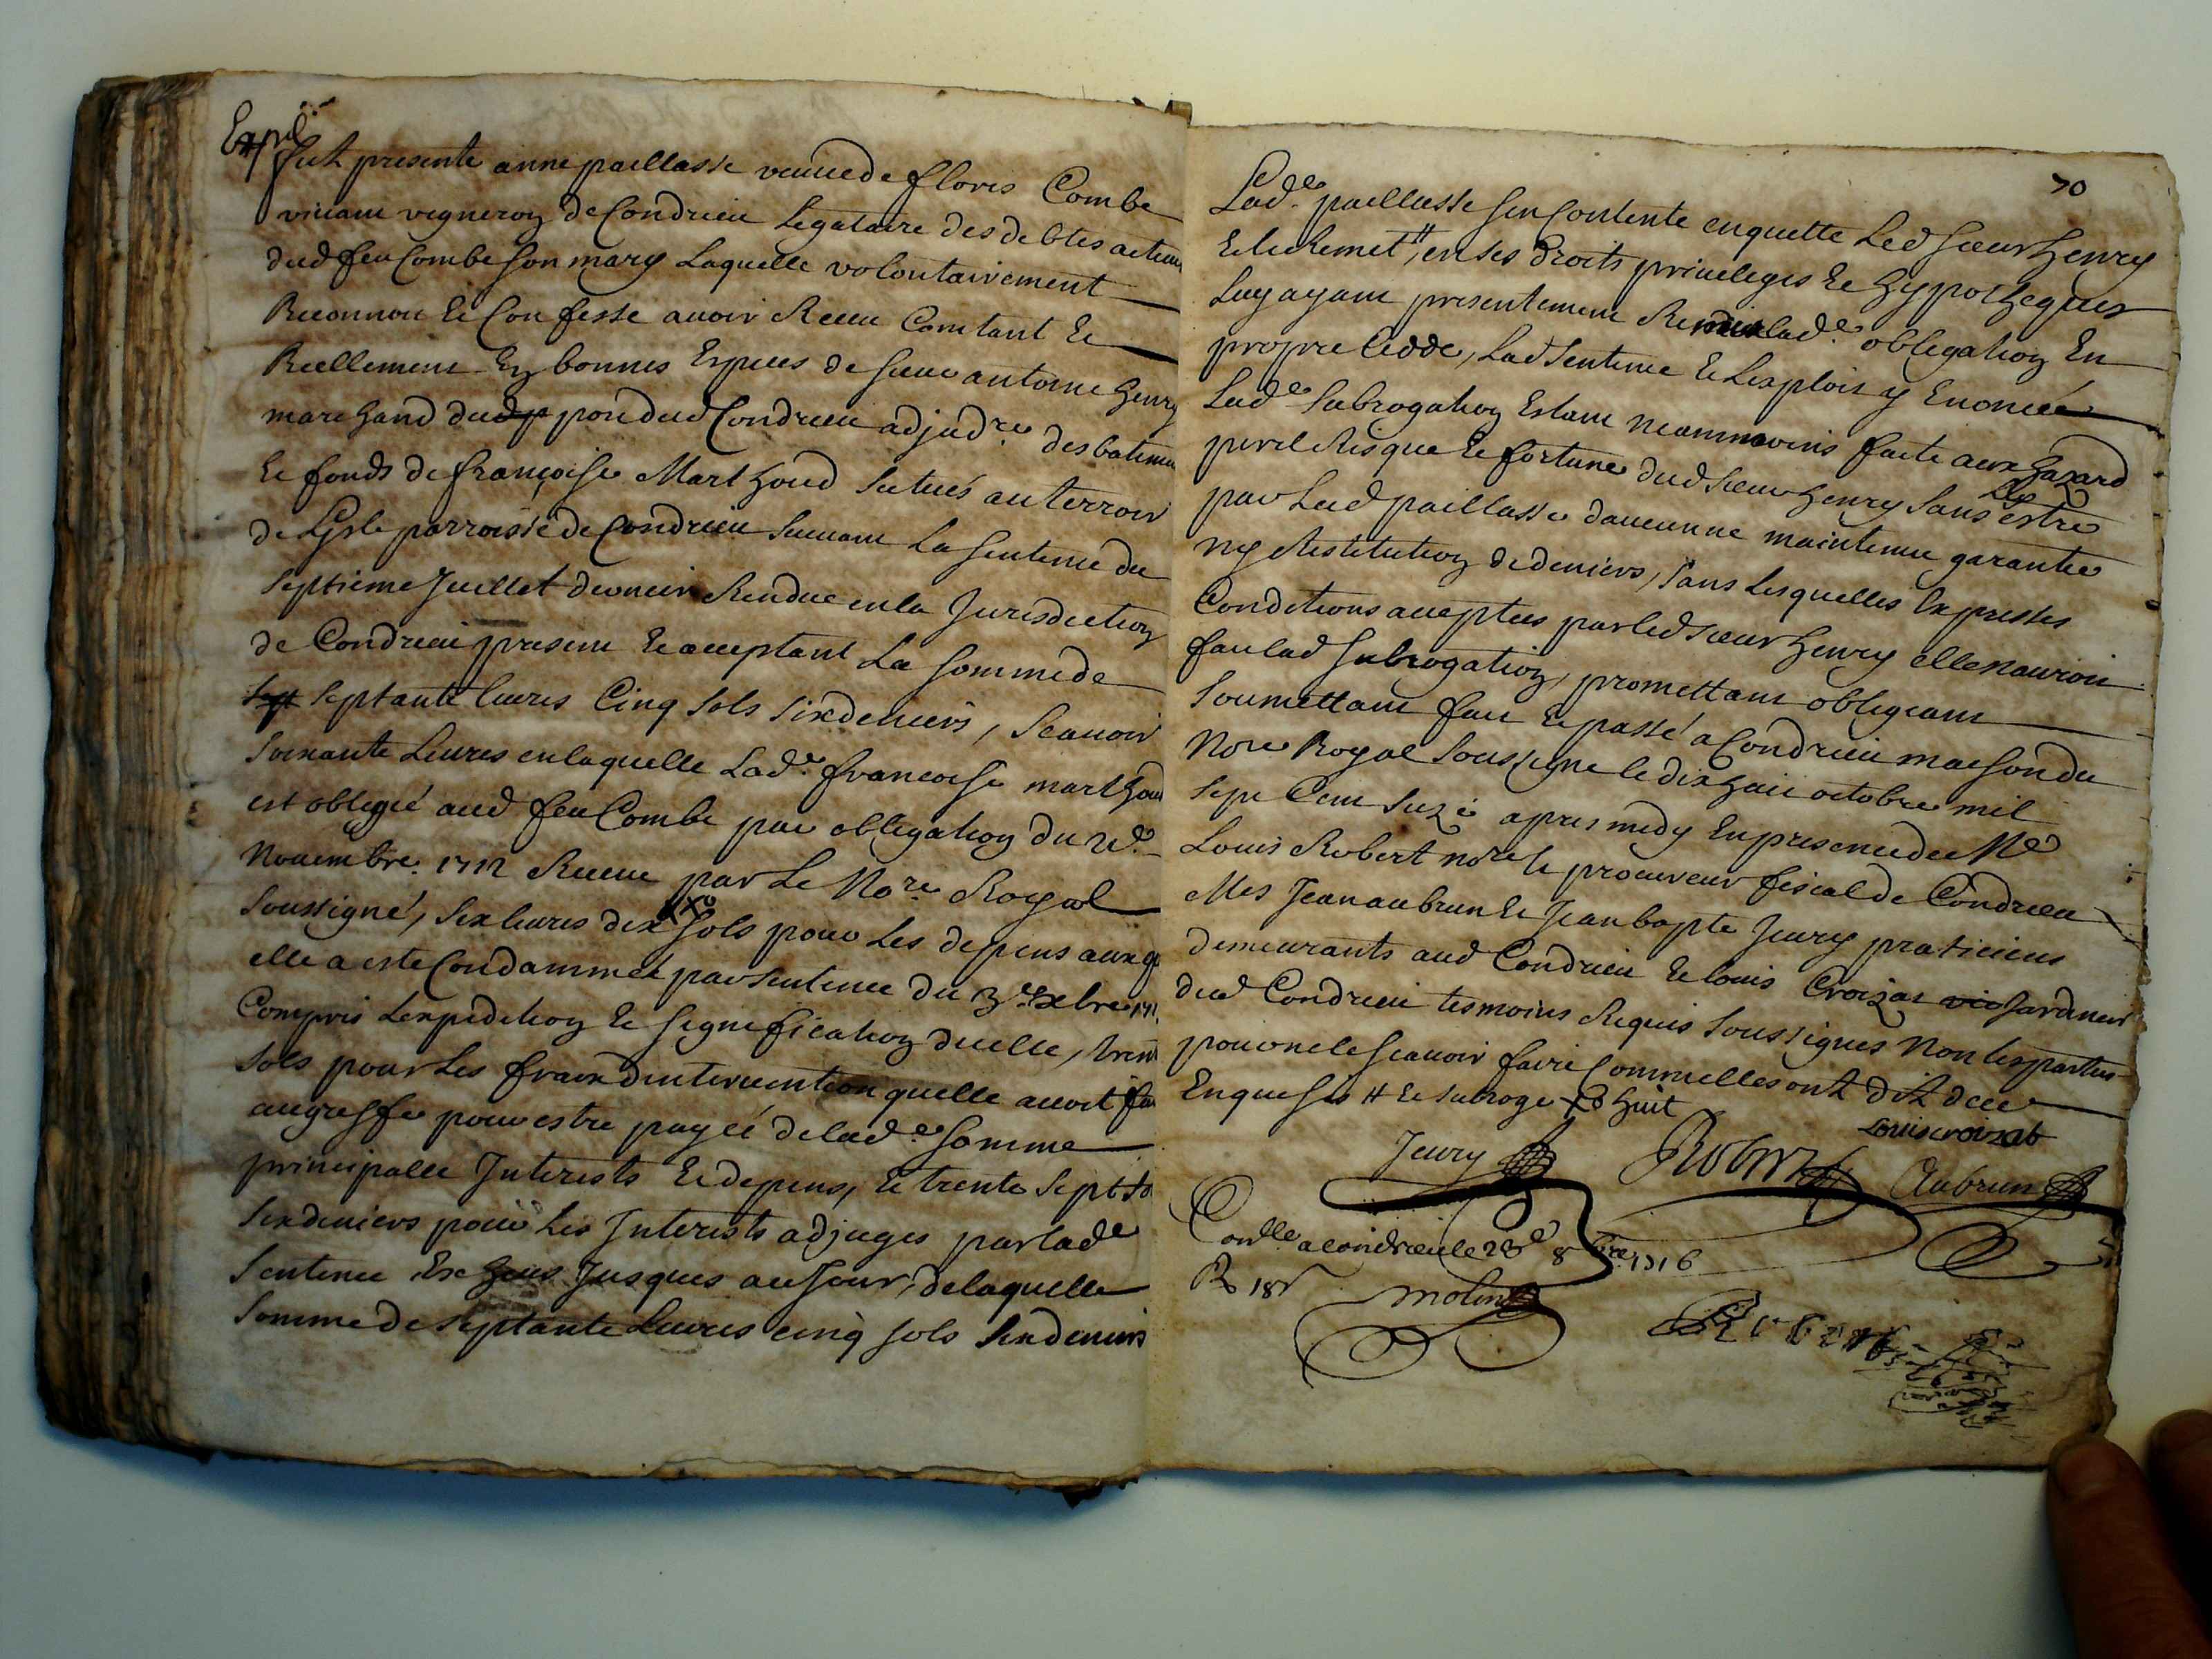 Expié
fut presente anne paillasse veuue de floris Combe
viuant vigneron de Condrieu Legataire des debtes actiues
dud feu Combe son mary Laquelle volontairement
Reconnoit et Confesse auoir Receu Comtant Et
Reellement En bonnes Especes de sieur antoine henry
marchand dud pon dud Condrieu adjud.re des batimen
Et fonds de françoise Marthoud situés au terroir
de Lysle parroisse de Condrieu suiuant La sentence du
septieme Juillet dernier Rendue en la Jurisdiction
de Condrieu present Et acceptant La somme de
sept septante liures Cinq sols six deniers, scauoir
soixante Liures en laquelle Lad.e francoise marthoud
est obligée aud feu Combe par obligation du 2e.
Nouembre. 1712 Receue par Le No.re Royal
soussigné, six liures dix sols pour les depens auxq
elle a esté Condammée par sentence du 3e xbre 171
Compris Lexpedition Et signification dicelle, trente
sols pour Les fraix dintervention quelle auoit fai
au greffe pour estre payée de lad.e somme
principalle Interests Et depens, Et trente sept so
six deniers pour Les Interests adjuges par lad.e
sentence Escheus Jusques au Jour, de laquelle
somme de septante Liures cinq sols six deniers
70
Lad.e paillasse sen Contente en quitte Led sieur henry
Et le Remet # en ses droits priuileges Et hypotheques
Luy ayant presentement Remis lad.e obligation En
propre Cedde, Lad sentence Et Lexploit y Enoncée
Lad.e subrogation Estant neanmmoins faite aux hazard
peril Risque Et fortune dud sieur henry sans estre
par Lad paillasse daucunne maintenue garantie
ny Restitution de deniers, sans Lesquelles Expresses
Conditions acceptees par led sieur henry elle nauroit
fait lad subrogation, promettant obligeant
soumettant fait Et passé a Condrieu maison du
No.re Royal soussigne le dixhuit octobre mil
sept Cent seize apres midy En presence de Me
Louis Robert no.re Et procureur fiscal de Condrieu
Mes Jean aubrun Et Jean bapte Jeury praticiens
demeurants aud Condrieu Et louis Croizat vig Jardinier
dud Condrieu tesmoins Requis soussignes Non les parties
pour ne le scauoir faire Comme elles ont dit de ce
Enquises # Et subroge huit
Louis croizat
Jeury Robert Aubrun
Con.lle a condrieu le 28e 8bre 1716
R 18s
molin